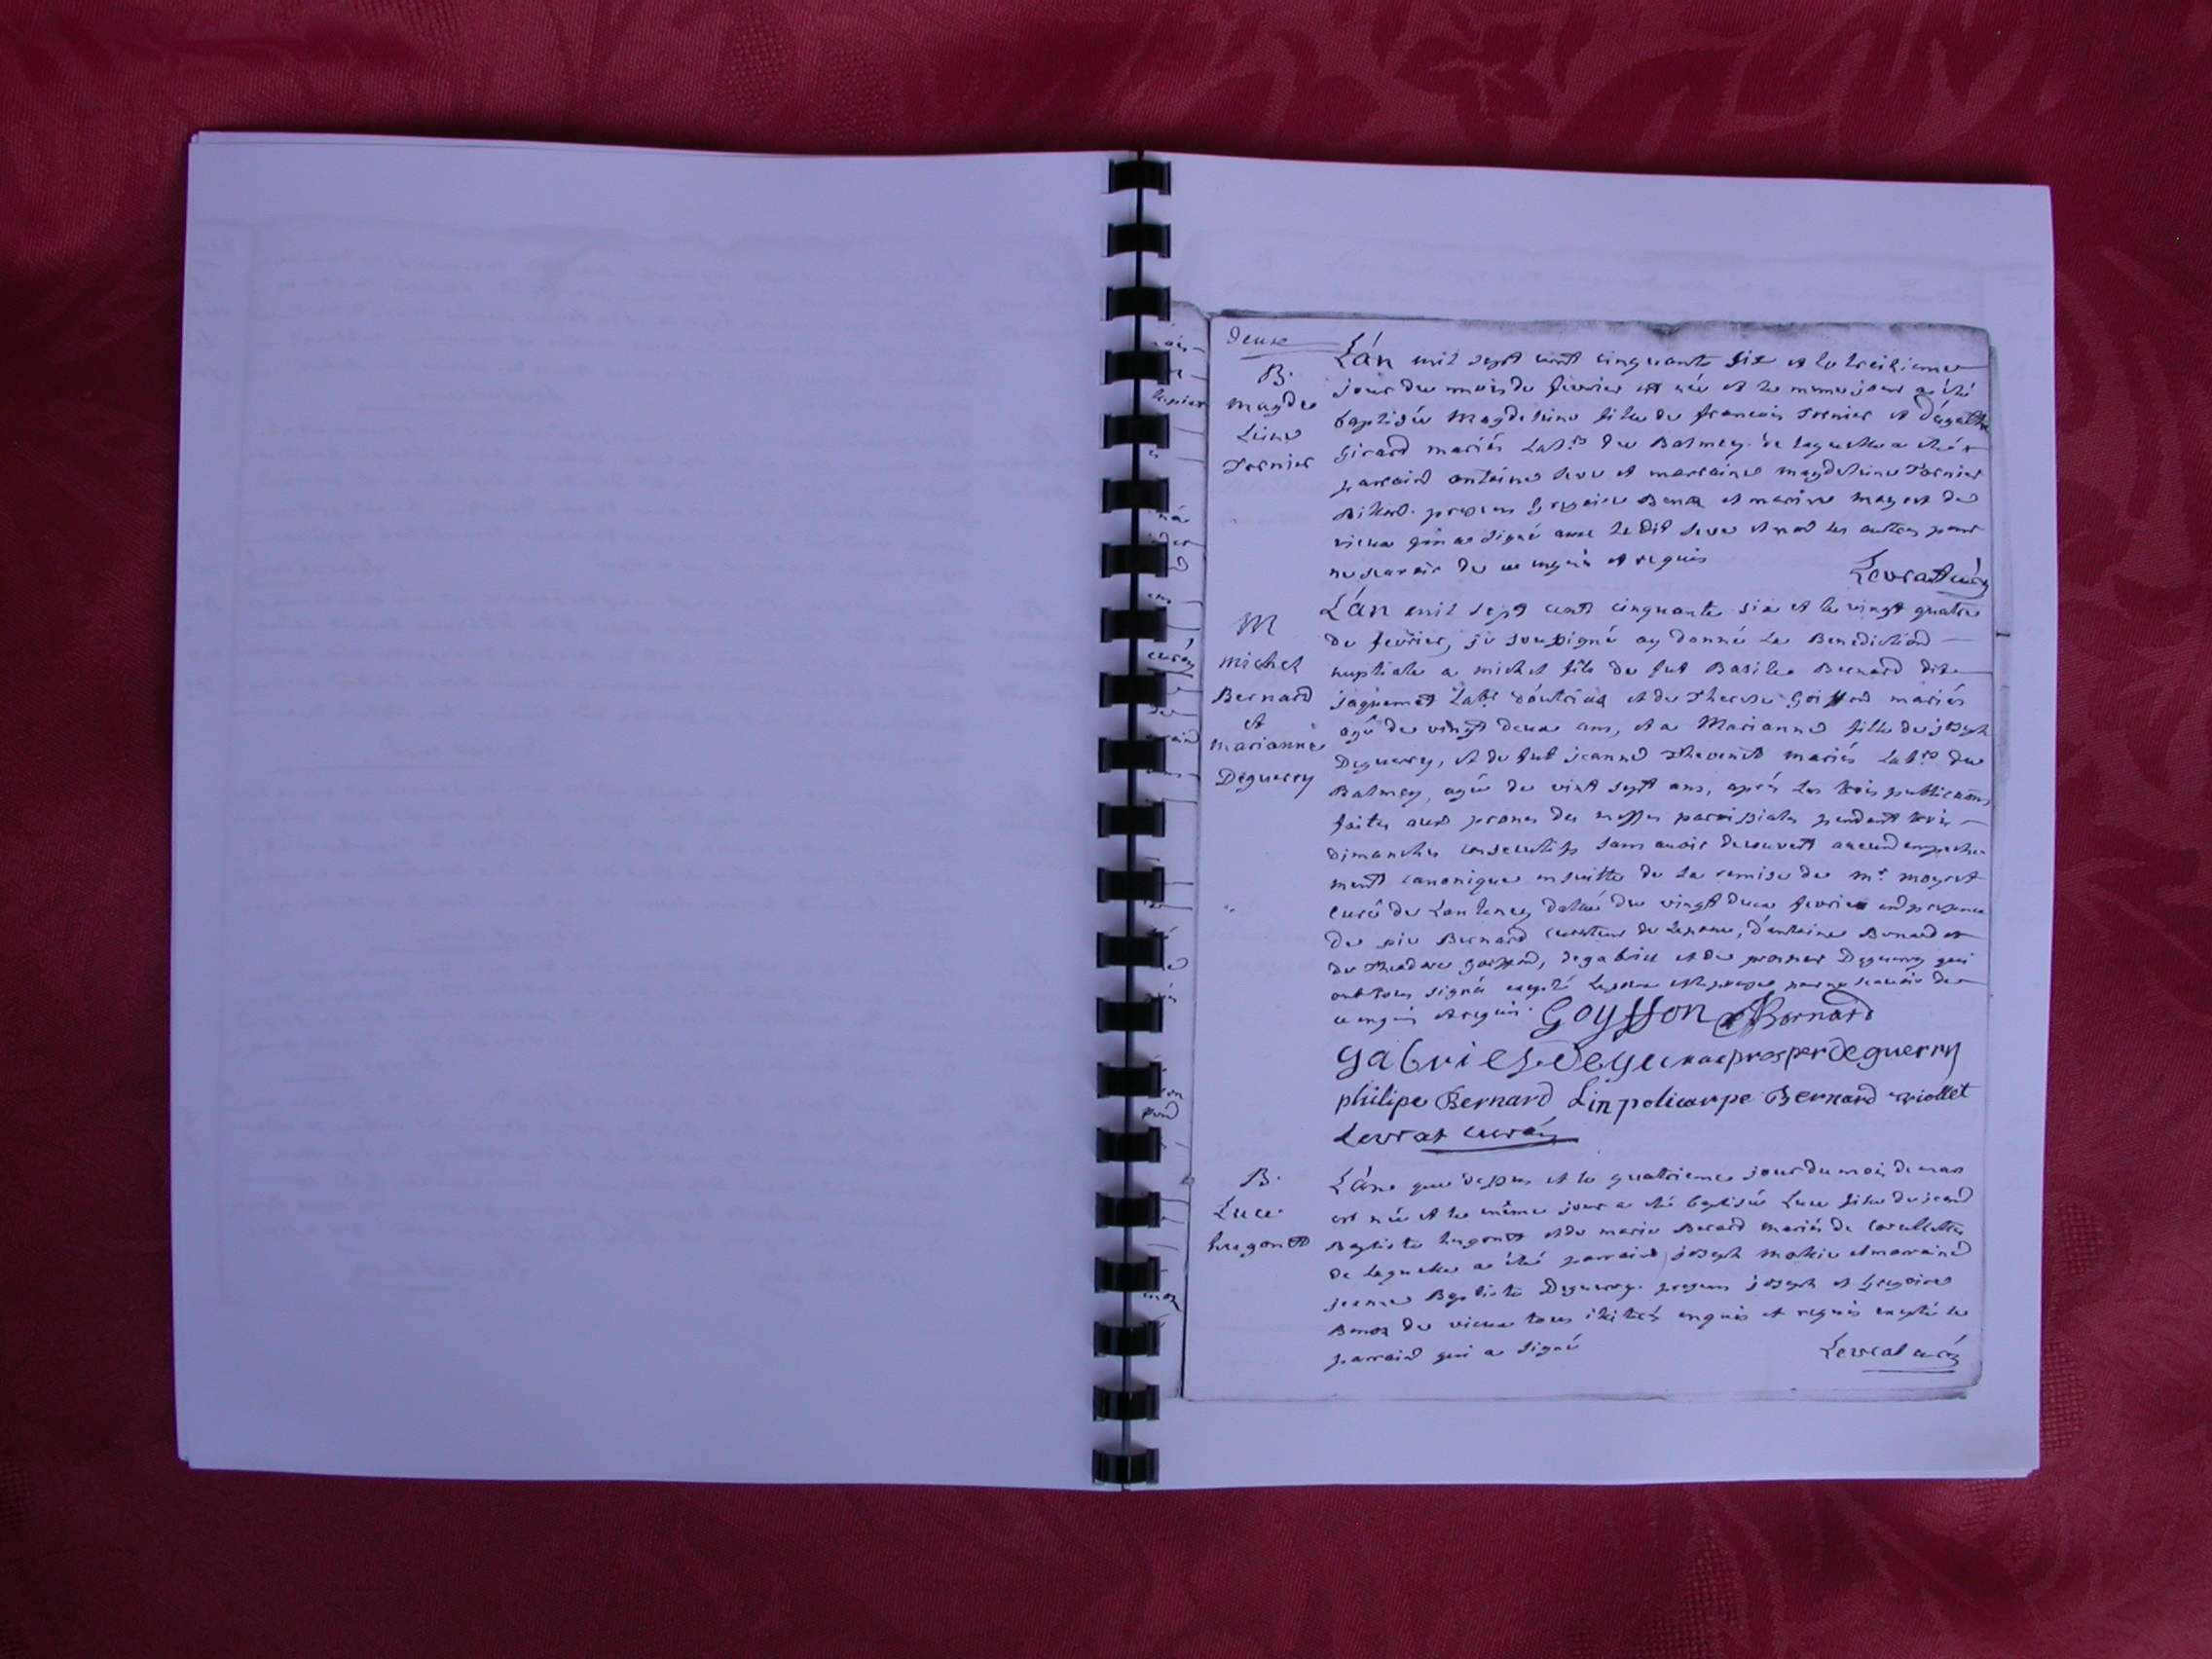 deux
B.
magde
Leine
Tornier
Lán mil sept cent cinquante six et le treizieme
jour du mois de fevrier est née et le meme jour a été
baptisée Magdeleine fille de francois Tornier et
Girard mariés Lab.rs du Balmey. de laquelle a été
parrain antoine et marraine magdeleine Tornier
presens gregoire Benoz et marin mayet de
vieux qui a signé avec le dit et non les autres pour
ne scavoir de ce enquis et requis
Levrat curé
M
michel
Bernard
et
marianne
Deguerry
Lán mil sept cent cinquante six et le vingt quatre
de fevrier, je soussigné ay donné la Benediction
nuptiale a michel fils de fut Basile Bernard dit
jaquemet Lab.r et de Therese Goiffon mariés
agé de vingt deux ans, et a Marianne fille de joseph
Deguerry, et de fut jeanne Thevenet mariés Lab.rs du
Balmey, agée de vint sept ans, aprés les trois publications
faites aux prones des messes paroissiales pendant trois
dimanches consecutifs sans avoir decouvert aucun empeche
ment canonique ensuitte de la remise de mr. mayet
curé de Lantenay dattée du vingt deux fevrier en presence
de Bernard curateur de Lepoux, d'antoine Bernard et
de Theodore goiffon, de gabriel et de prosper Deguerry qui
ont tous signé excepté pour ne scavoir de
ce enquis et requis. Goyffon Bernard
gabriel deguerry prosper deguerry
philipe Bernard Lin policarpe Bernard violllet
Levrat curé
B.
Luce
hugonet
Lán que dessus et le quatrieme jour du mois de mars
est née et le même jour a été baptisée Luce fille de jean
Baptiste hugonet et de marie Berard mariés de
de laquelle a été parrain joseph et marraine
jeanne Baptiste Deguerry. presens joseph et gregoire
Benoz de vieux tous enquis et requis excepté le
parrain qui a signé
Levrat curé